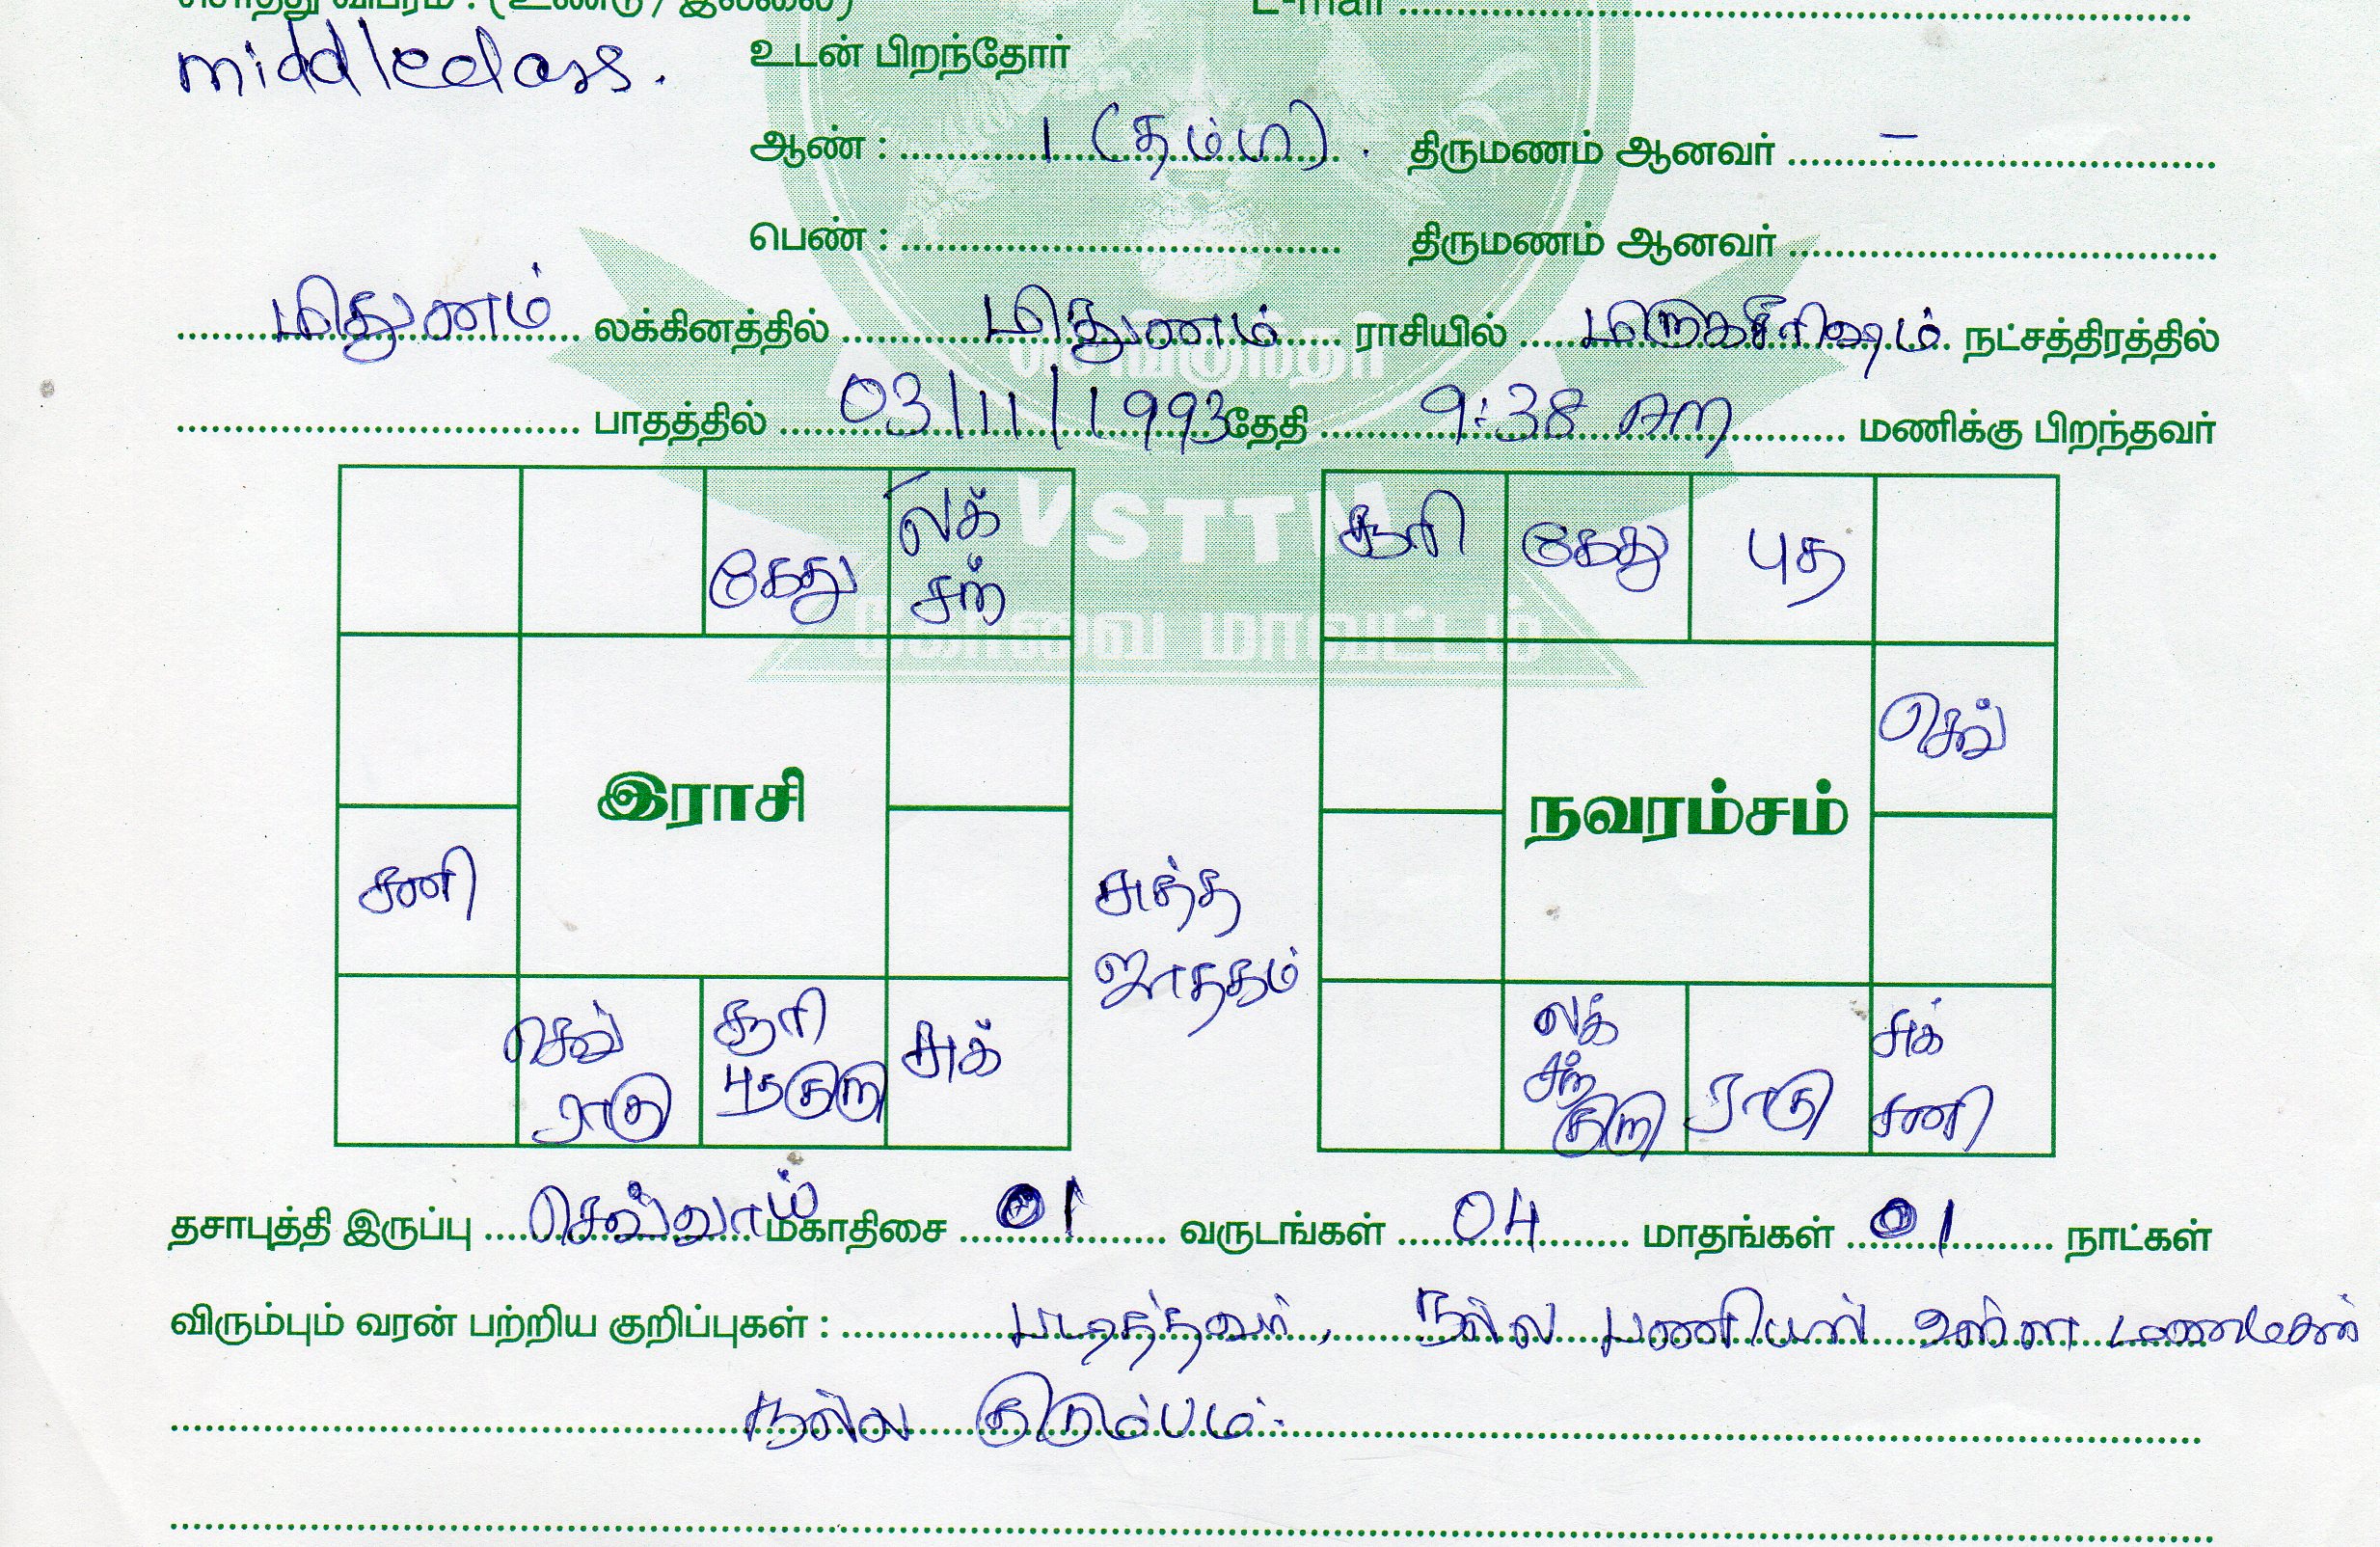 சொத்து விபரம் : (உண்டு / இல்லை) E-mail
middleclass.
உடன் பிறந்தோர்
ஆண் : 1 (தம்பி). திருமணம் ஆனவர் –
பெண் : திருமணம் ஆனவர்
மிதுனம் லக்கினத்தில் மிதுனம் ராசியில் மிருகசீரிஷம் நட்சத்திரத்தில்
பாதத்தில் 03/11/1993 தேதி 9:38 AM மணிக்கு பிறந்தவர்
கேது லக் சந்
சனி
இராசி
செவ் ராகு சூரி புத குரு சுக்
சுத்த ஜாதகம்
சூரி கேது புத
செவ்
நவரம்சம்
லக் சந் குரு ராகு சுக் சனி
VSTTM
கோவை மாவட்டம்
தசாபுத்தி இருப்பு செவ்வாய் மகாதிசை 01 வருடங்கள் 04 மாதங்கள் 01 நாட்கள்
விரும்பும் வரன் பற்றிய குறிப்புகள் : படித்தவர், நல்ல பணியில் உள்ள மணமகன்
நல்ல குடும்பம்.